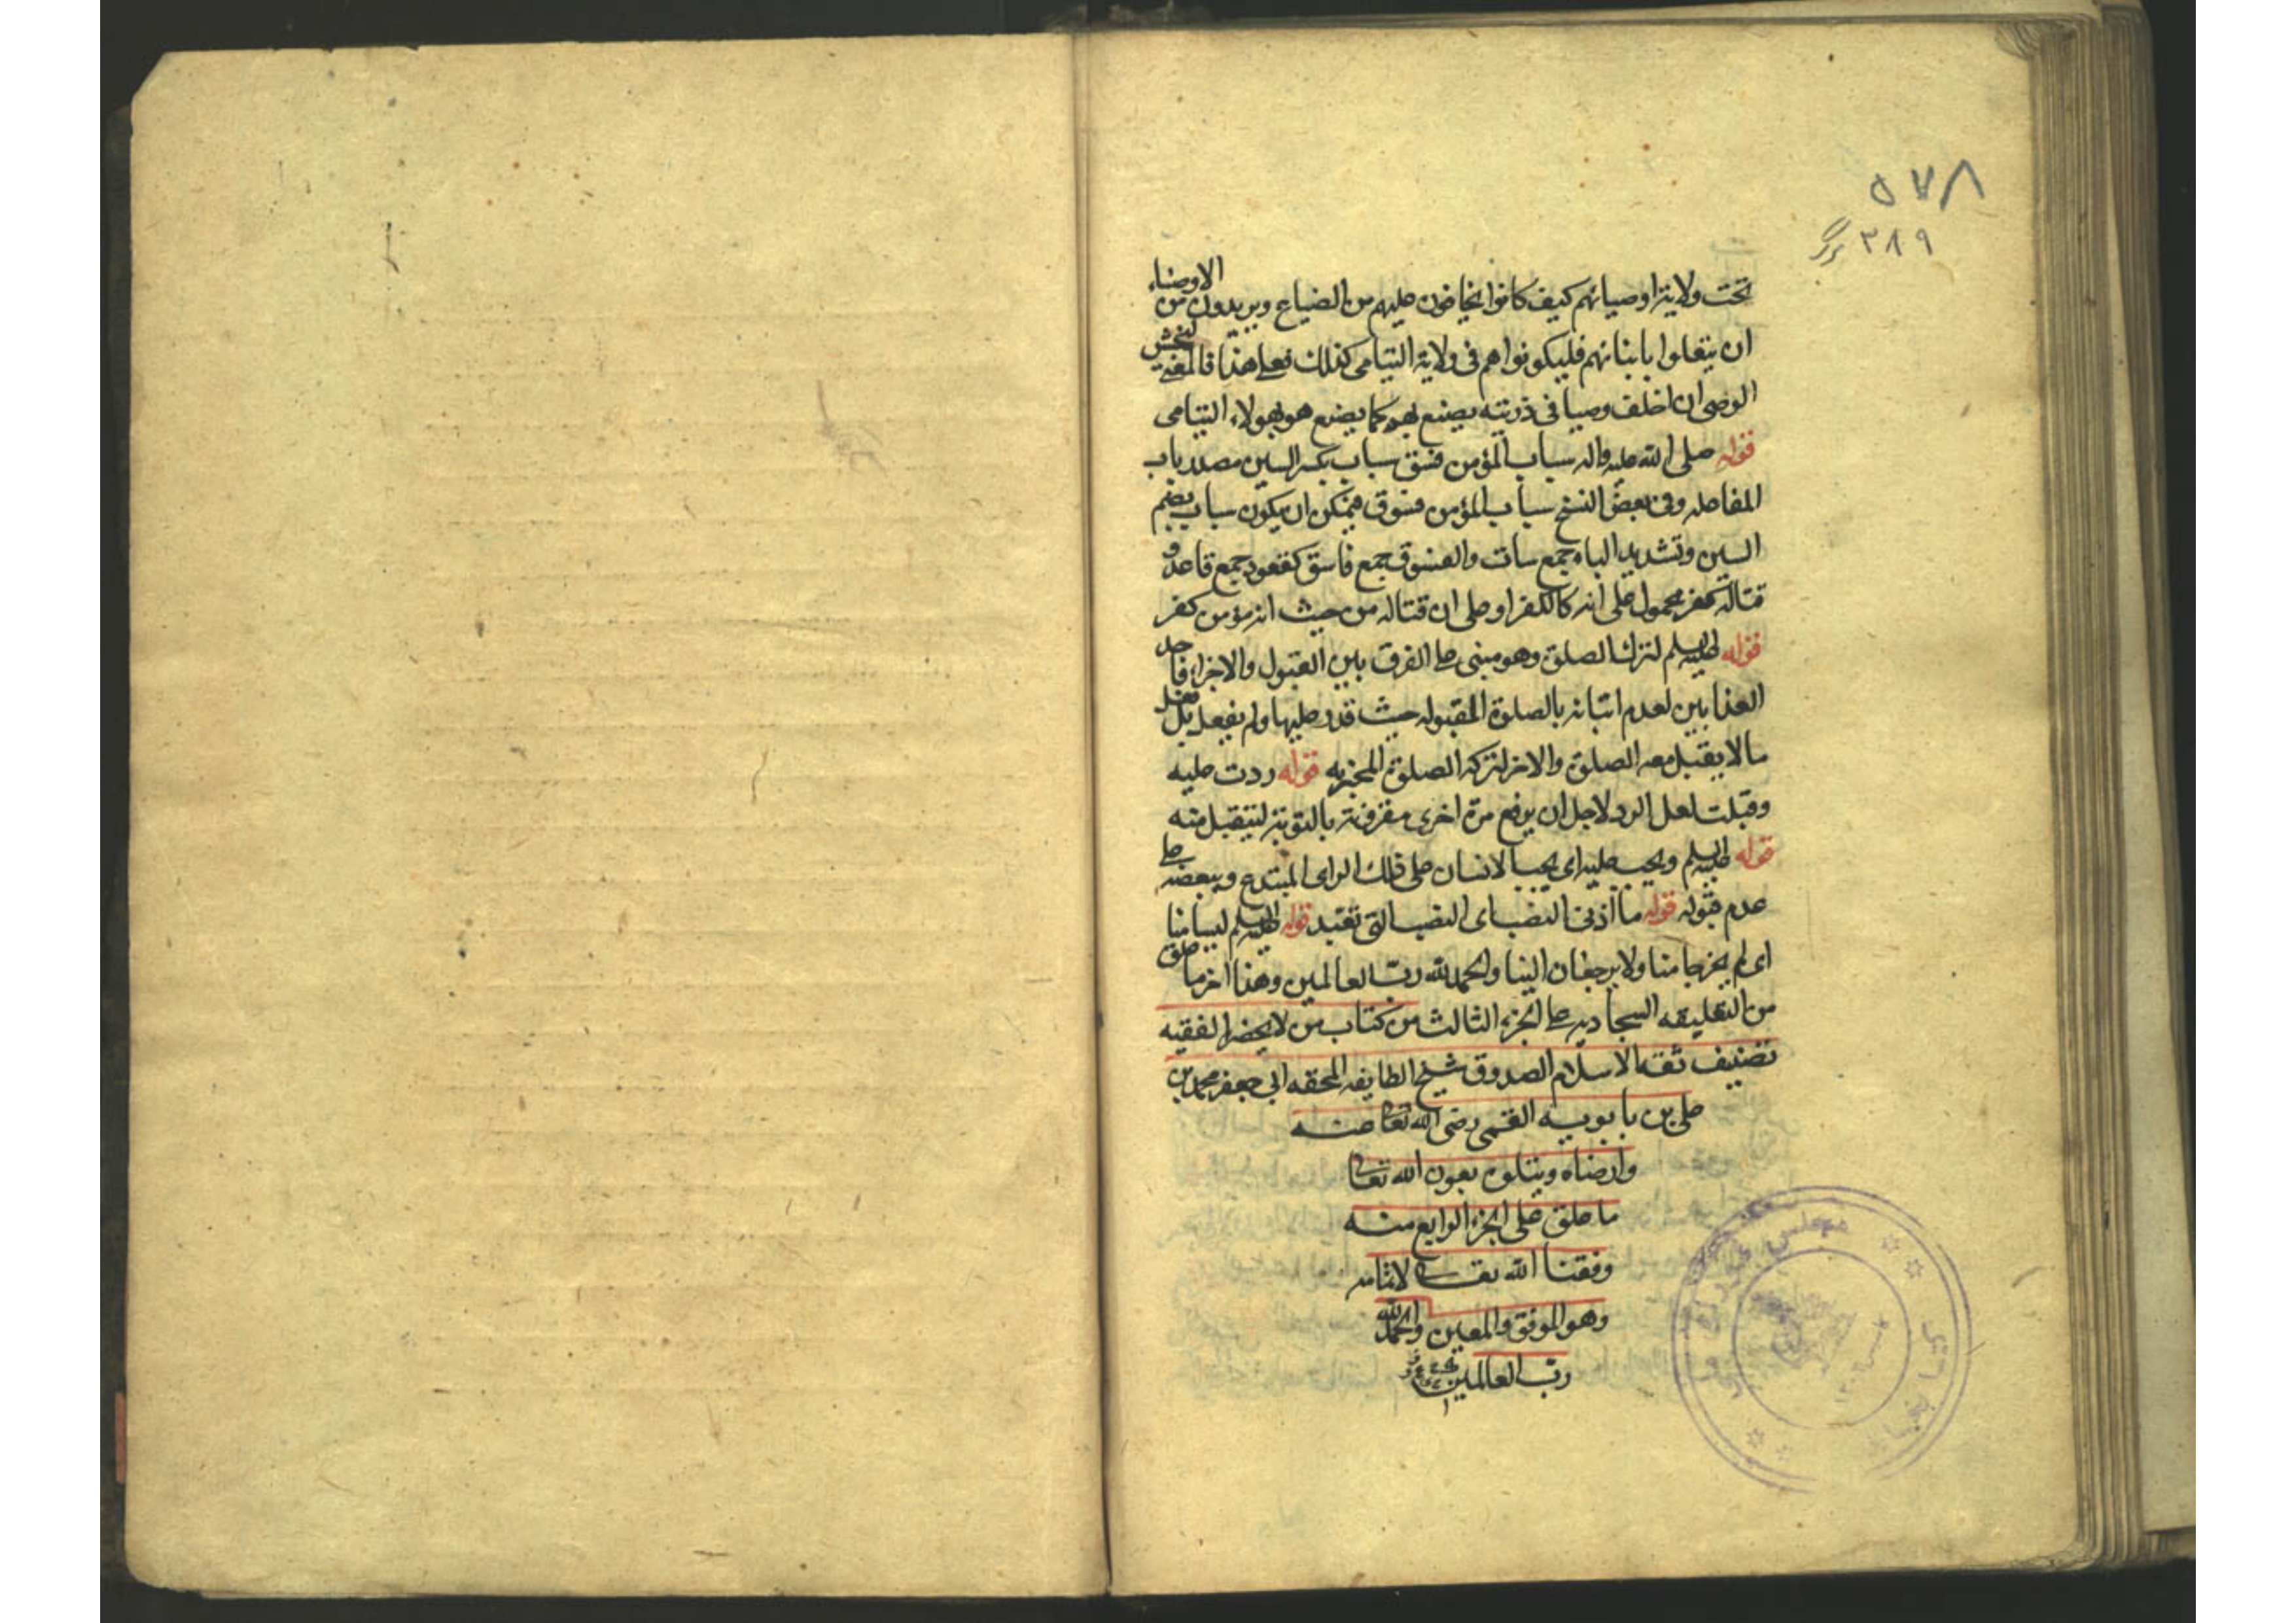 ٥٧٨
٢٨٩ برگ
تحت ولاية اوصيائهم كيف كانوا يخافون عليهم من الضياع ويريدون من الاوصياء
ان يتعلوا بابنائهم فليكونوا هم في ولاية اليتامى كذلك فعلى هذا فالمعنى ليخش
الوصى ان اخلف وصيا في ذريته يصنع بهم كما يصنع هو بهولاء اليتامى
قوله صلى الله عليه واله سباب المؤمن فسق سباب بكسر السين مصدر باب
المفاعله وفي بعض النسخ سباب المؤمن فسوق فيمكن ان يكون سباب بضم
السين وتشديد الباء جمع ساب والفسوق جمع فاسق كقعود جمع قاعد و
قتاله كفر محمول على انه كالكفر او على ان قتاله من حيث انه مؤمن كفر
قوله عليه السلم لترك الصلوة وهو مبنى على الفرق بين القبول والاجزاء فاحد
العذابين لعدم اتيانه بالصلوة المقبوله حيث قدر عليها ولم يفعل بل فعل
ما لا يقبل معه الصلوة والاخر لتركه الصلوة المجزيه قوله ردت عليه
وقبلت لعل الرد لاجل ان يرفع مرة اخرى مقرونة بالتوبة ليتقبل منه
قوله عليه السلم ويحب عليه اى يحب الانسان على ذلك الراى المبتدع ويبغضه على
عدم قبوله قوله ما اذنى النصب اى النصب التى تعبد قوله عليه السلم ليسا منا
اى لم يخرجا منا ولا يرجعان الينا والحمد لله رب العالمين وهذا اخر ما علق
من التعليقه السجاديه على الجزء الثالث من كتاب من لا يحضره الفقيه
تصنيف ثقة الاسلام الصدوق شيخ الطايفه المحقه ابى جعفر محمد بن
على بن بابويه القمى رضى الله تعالى عنه
وارضاه ويتلوه بعون الله تعالى
ما علق على الجزء الرابع منه
وفقنا الله تعالى لاتمامه
وهو الموفق والمعين والحمد لله
رب العالمين
مجلس